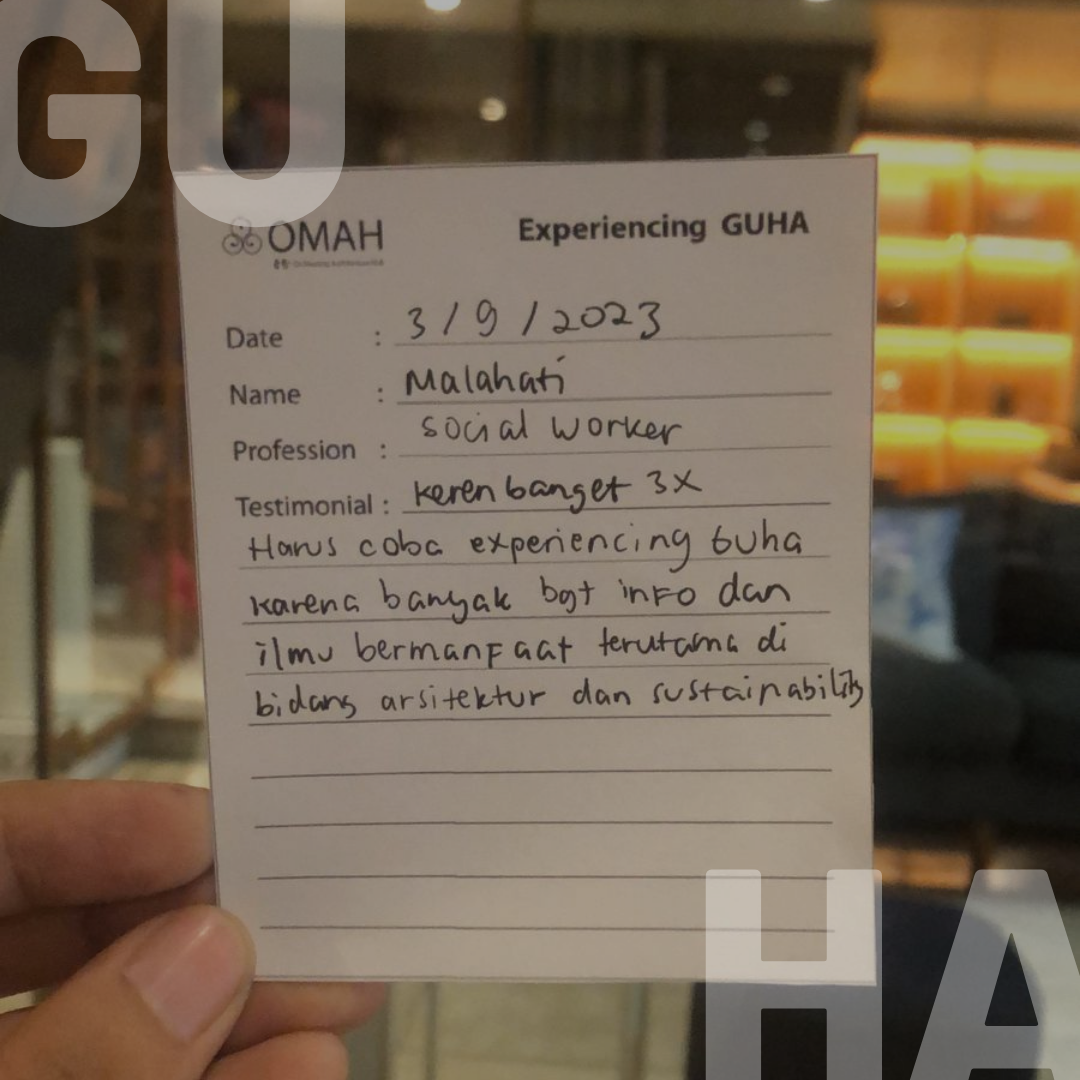 GU
OMAH
Experiencing GUHA
Date : 3/9/2023
Name : Malahati
Profession : social worker
Testimonial : keren banget 3x
Harus coba experiencing Guha
karena banyak bgt info dan
ilmu bermanfaat terutama di
bidang arsitektur dan sustainability
HA